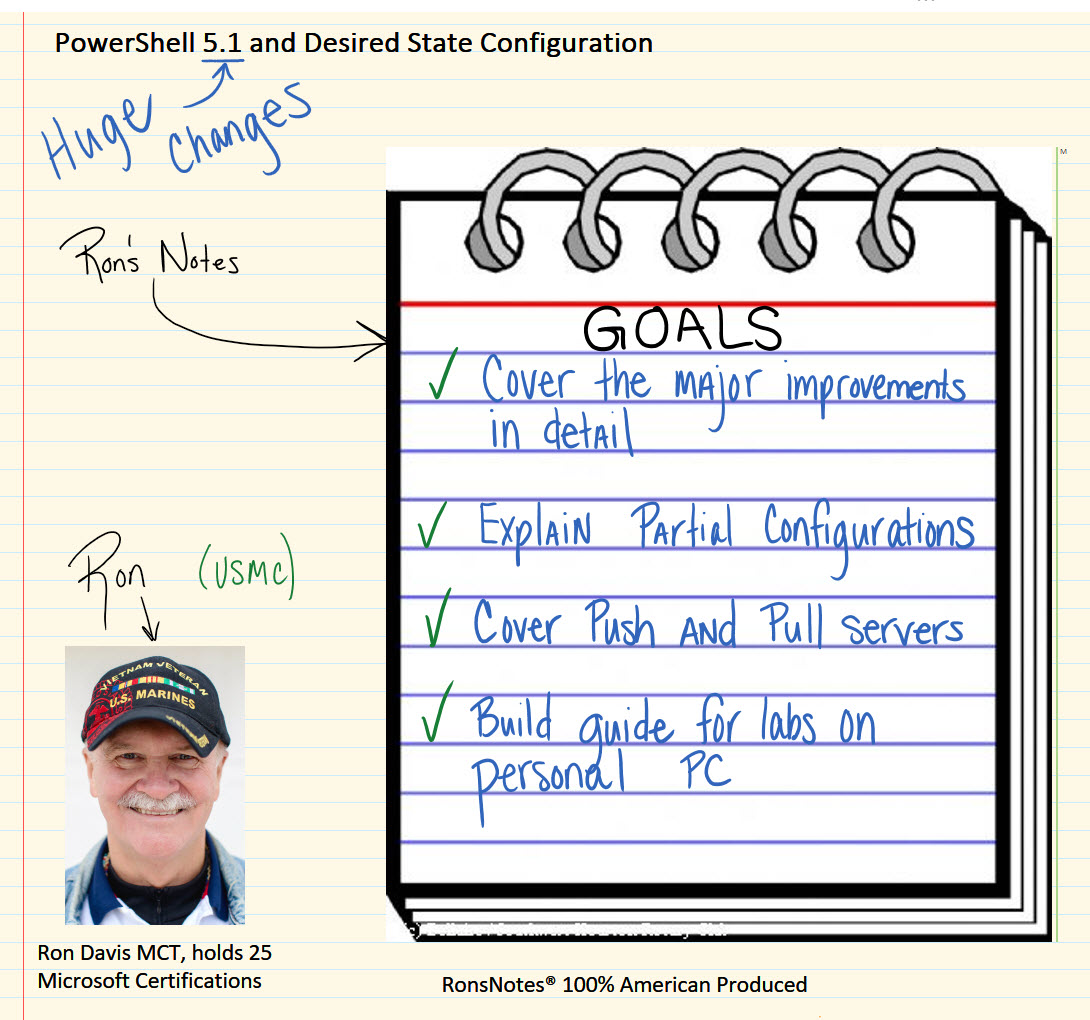 PowerShell 5.1 and Desired State Configuration
Huge
Changes
Ron's Notes
GOALS
✓ Cover the major improvements
in detail
✓ Explain Partial Configurations
✓ Cover Push and Pull servers
✓ Build guide for labs on
personal PC
Ron (USMC)
VIETNAM VETERAN
U.S. MARINES
Ron Davis MCT, holds 25
Microsoft Certifications
RonsNotes® 100% American Produced